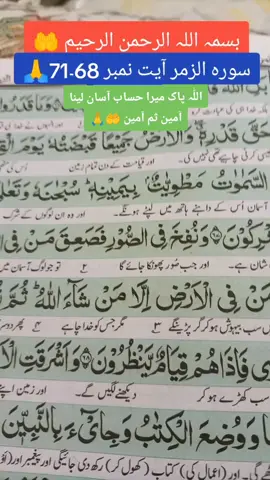 بسمہ اللہ الرحمن الرحیم 🤲
سورہ الزمر آیت نمبر 68-71 🙏
اللہ پاک میرا حساب آسان لینا
آمین ثم آمین 🤲🙏
حَقَّ قَدْرِهٖ وَالْاَرْضُ جَمِيْعًا قَبْضَتُهٗ يَوْمَ
اور قیامت کے دن تمام زمین
السَّمٰوٰتُ مَطْوِيّٰتٌ بِيَمِيْنِهٖ سُبْحٰنَهٗ وَتَعٰلٰى
آسمان اُس کے داہنے ہاتھ میں لپٹے ہونگے۔ اور وہ ان لوگوں کے شرک
يُشْرِكُوْنَ وَنُفِخَ فِي الصُّوْرِ فَصَعِقَ مَنْ فِي
شان ہے۔ اور جب صُور پھونکا جائے گا تو جو لوگ آسمان میں
مَنْ فِي الْاَرْضِ اِلَّا مَنْ شَآءَ اللّٰهُ ثُمَّ
سب بیہوش ہو کر گر پڑینگے مگر جس کو خدا چاہے پھر
فَاِذَا هُمْ قِيَامٌ يَّنْظُرُوْنَ وَاَشْرَقَتِ
سب کھڑے ہو کر دیکھنے لگیں گے۔ اور زمین اپنے
وَوُضِعَ الْكِتٰبُ وَجِايْٓءَ بِالنَّبِيّٖنَ
اور (اعمال کی) کتاب (کھول کر) رکھ دی جائیگی اور پیغمبر اور